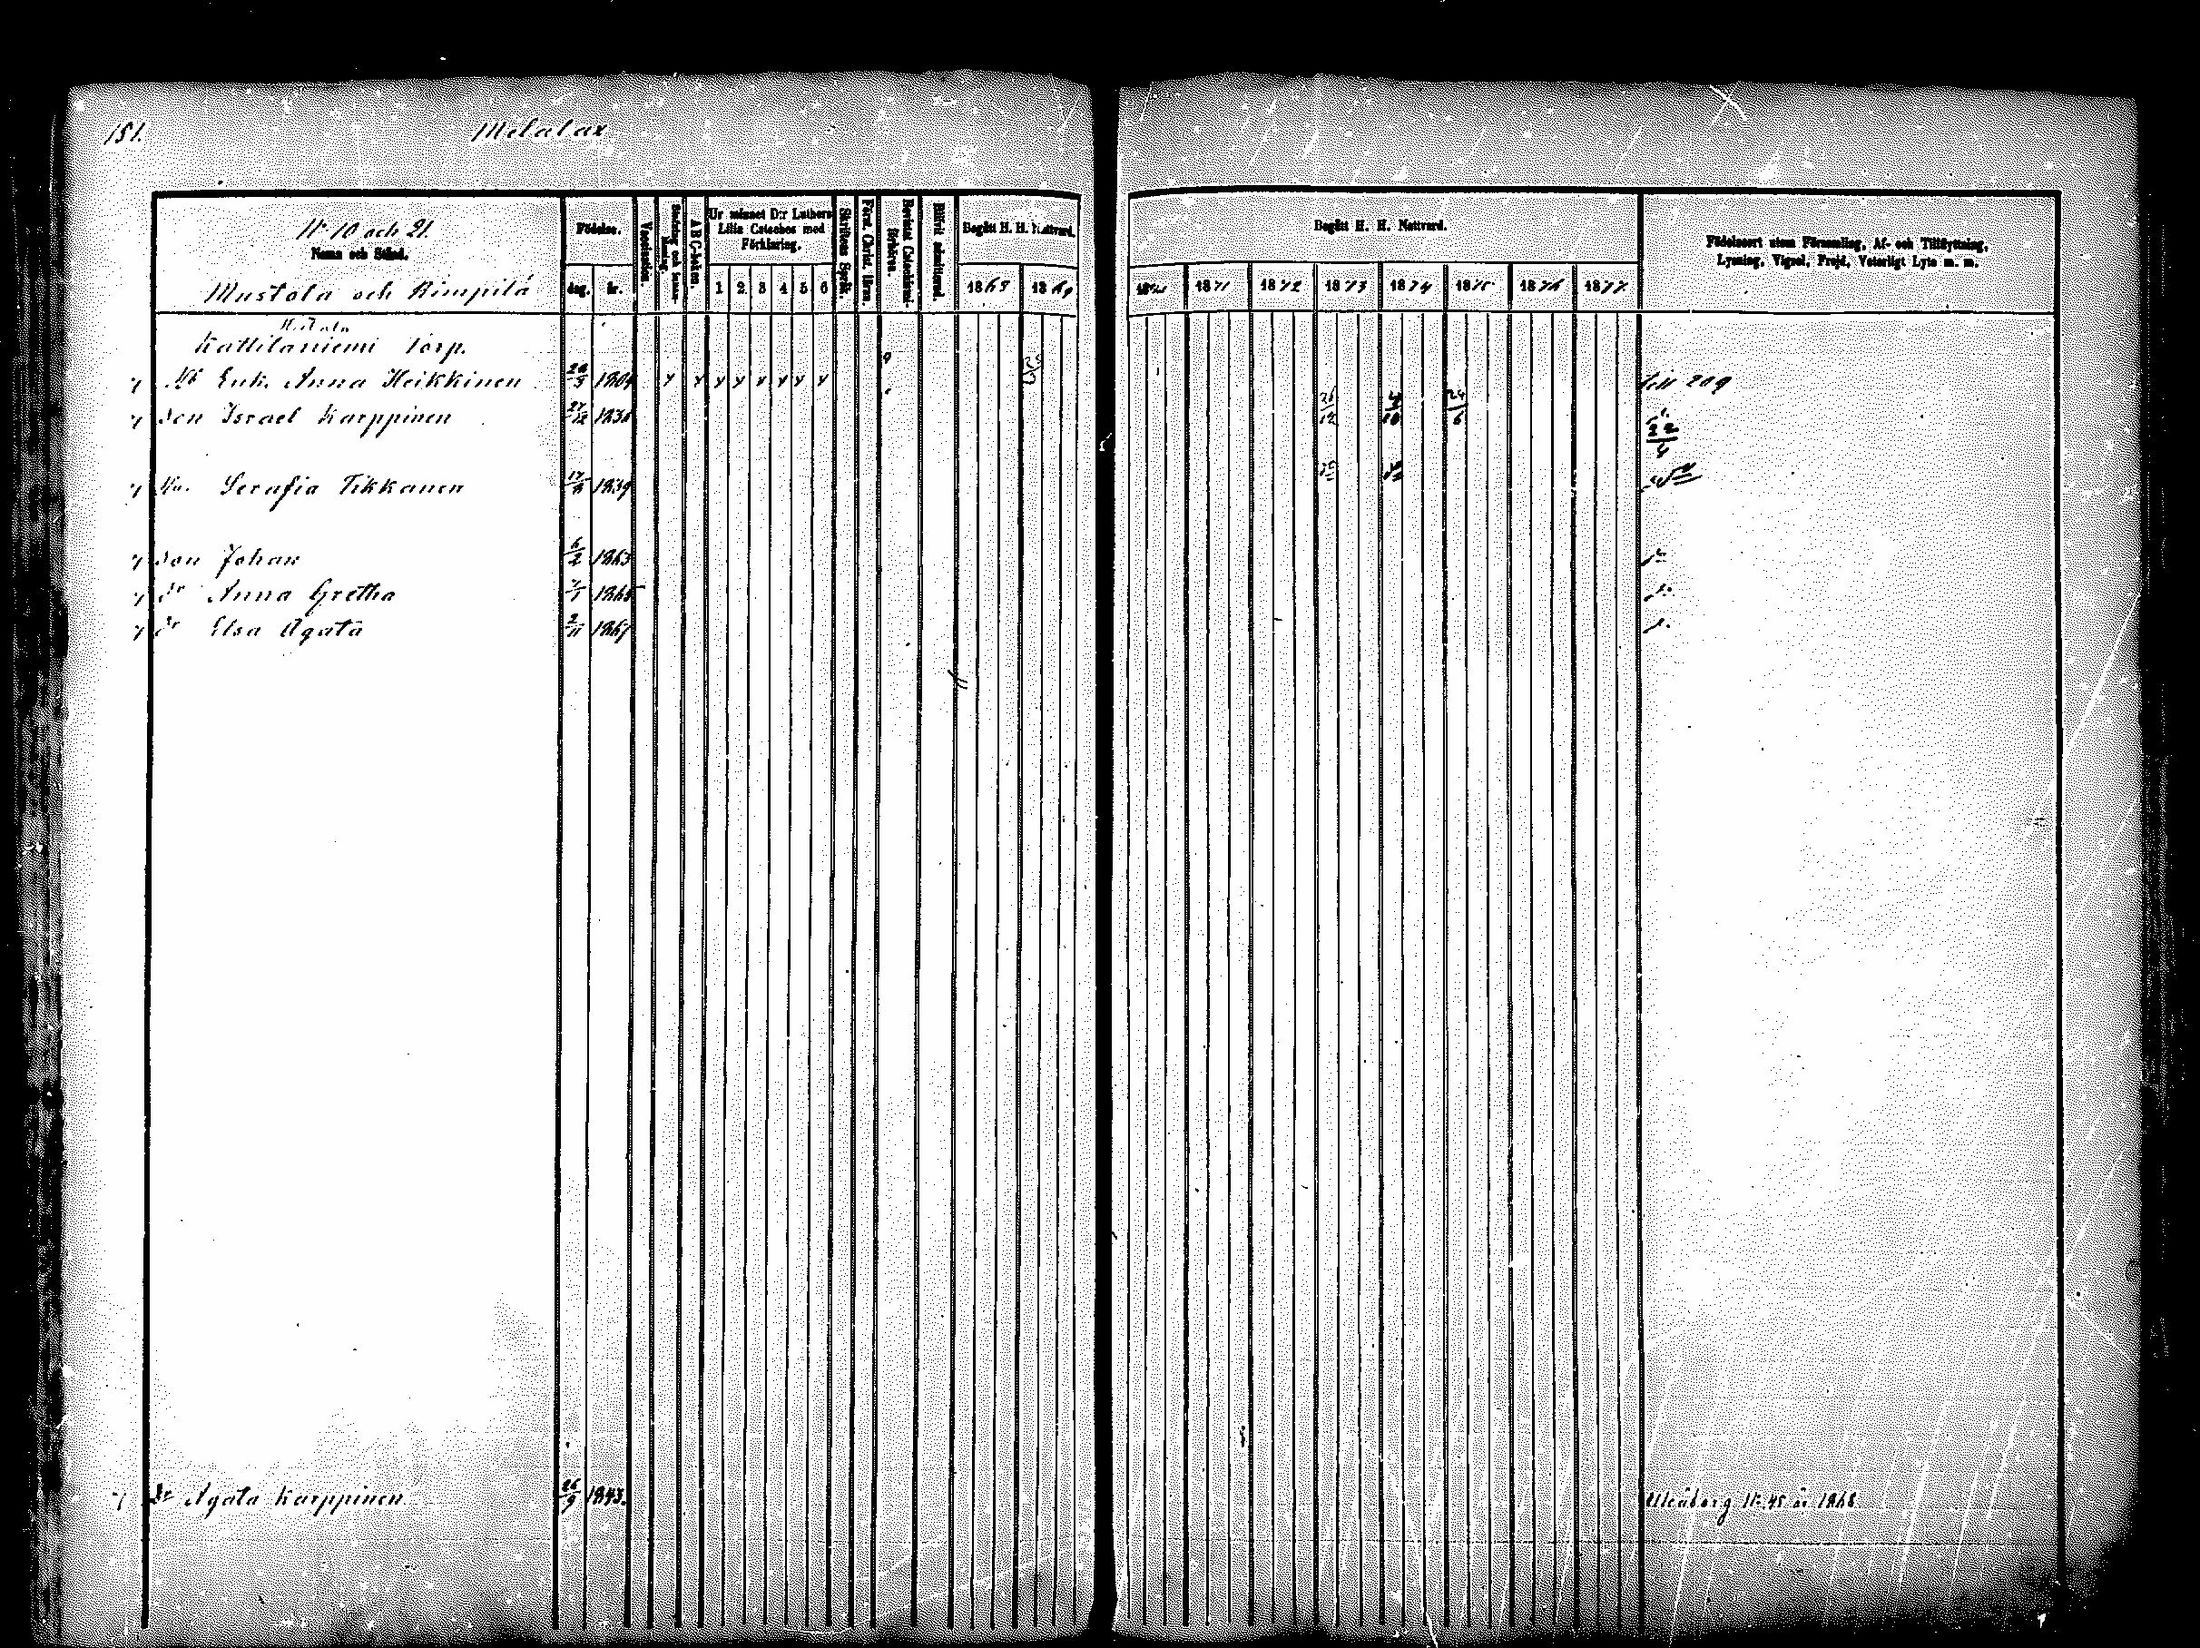 151.
Melalax
No 10 och 21.
Namn och Stånd.
Mustola och Rimpilä
Födelse.
dag.
år.
Vaccination.
A B C-boken.
Ur minnet D:r Luthers
Lilla Cateches med
Förklaring.
1 2 3 4 5 6
Skriftens Språk.
Först. Christ. lären.
Bevistat Catechismi-
förhören.
Blifvit admitterad.
Begått H. H. Nattvard.
1868 1869
Begått H. H. Nattvard.
1870 1871 1872 1873 1874 1875 1876 1877
Födelseort utom Församling, Af- och Tillflyttning,
Lysning, Vigsel, Frejd, Veterligt Lyte m. m.
Kattilaniemi torp.
Enk. Anna Heikkinen 1804 till 209
Son Israel Karppinen 1838 26/12 24/6
Hu. Serafia Tikkanen 1839
Son Johan 6/2 1863
Dr Anna Gretha 1865
Dr Elsa Agata 2/11 1867
Dr Agata Karppinen 26/9 1843. Uleåborg No 45 år 1868